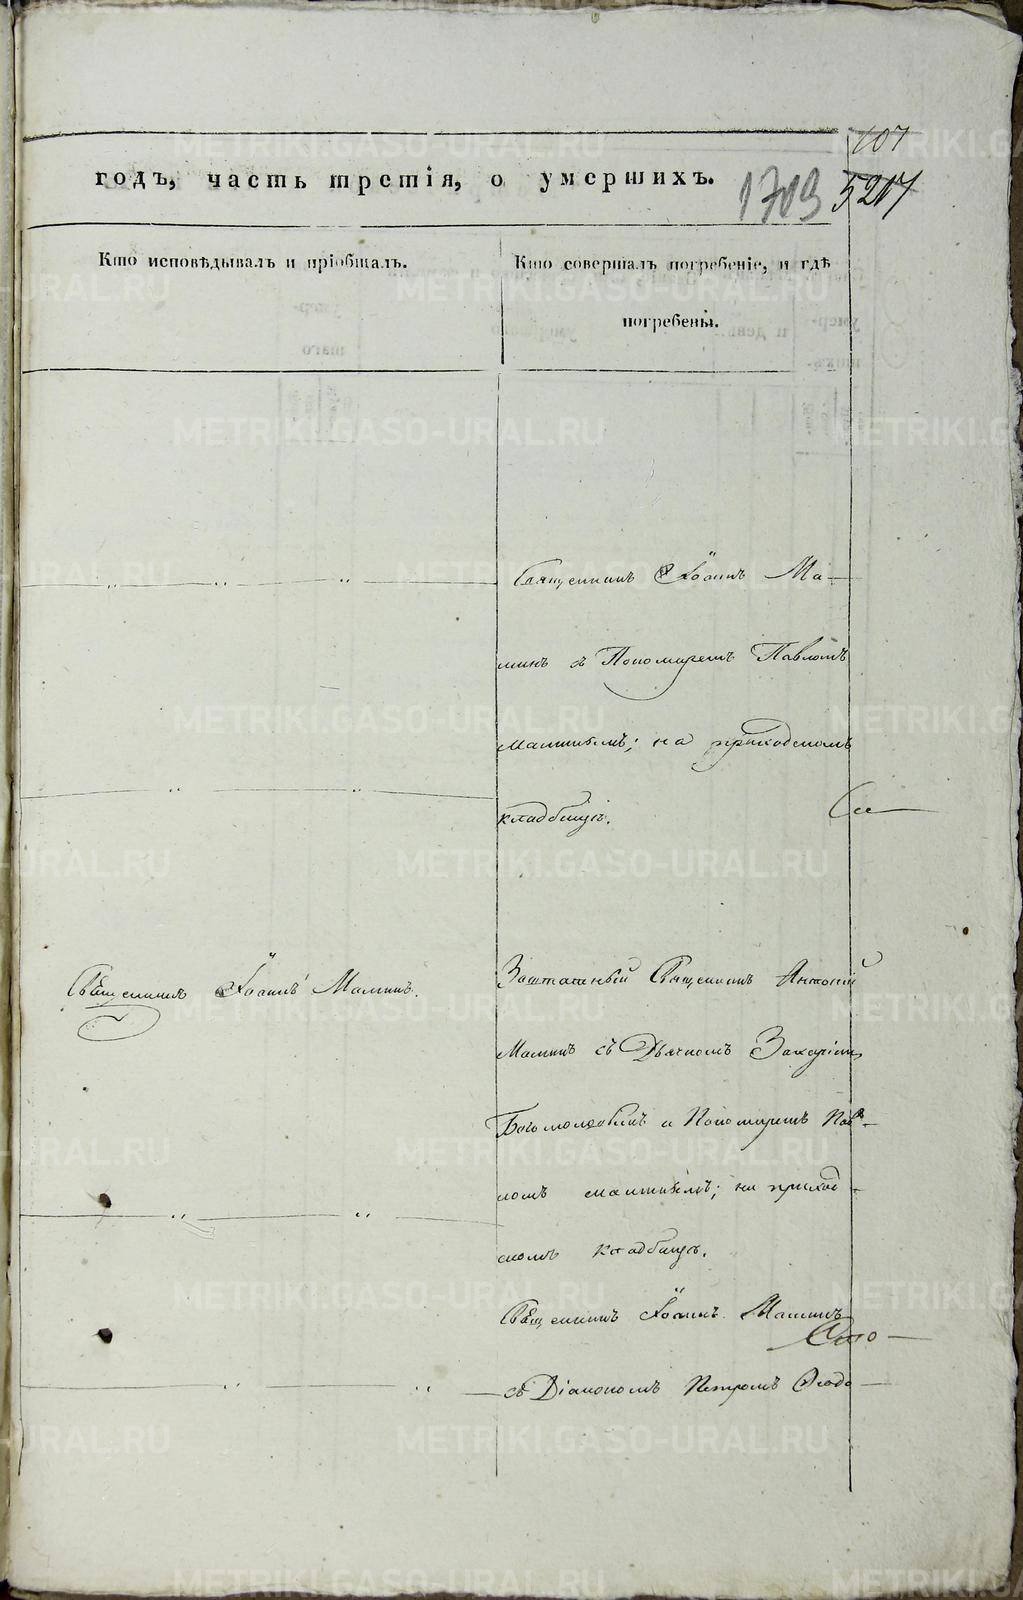 107
годъ, часть третія, о умершихъ.
1709 5217
Кто исповѣдывалъ и пріобщалъ.
Кто совершалъ погребеніе, и гдѣ
погребены.
Священникъ Іоаннъ Ма-
минъ съ Пономаремъ Павломъ
на приходскомъ
кладбищѣ.
Священникъ Іоаннъ Маминъ.
Заштатный Священникъ Антоній
Маминъ съ Дьячкомъ Захаріемъ
и Пономаремъ Пав-
ломъ на приход-
скомъ кладбищѣ.
Священникъ Іоаннъ Маминъ
съ Діакономъ Петромъ
METRIKI.GASO-URAL.RU